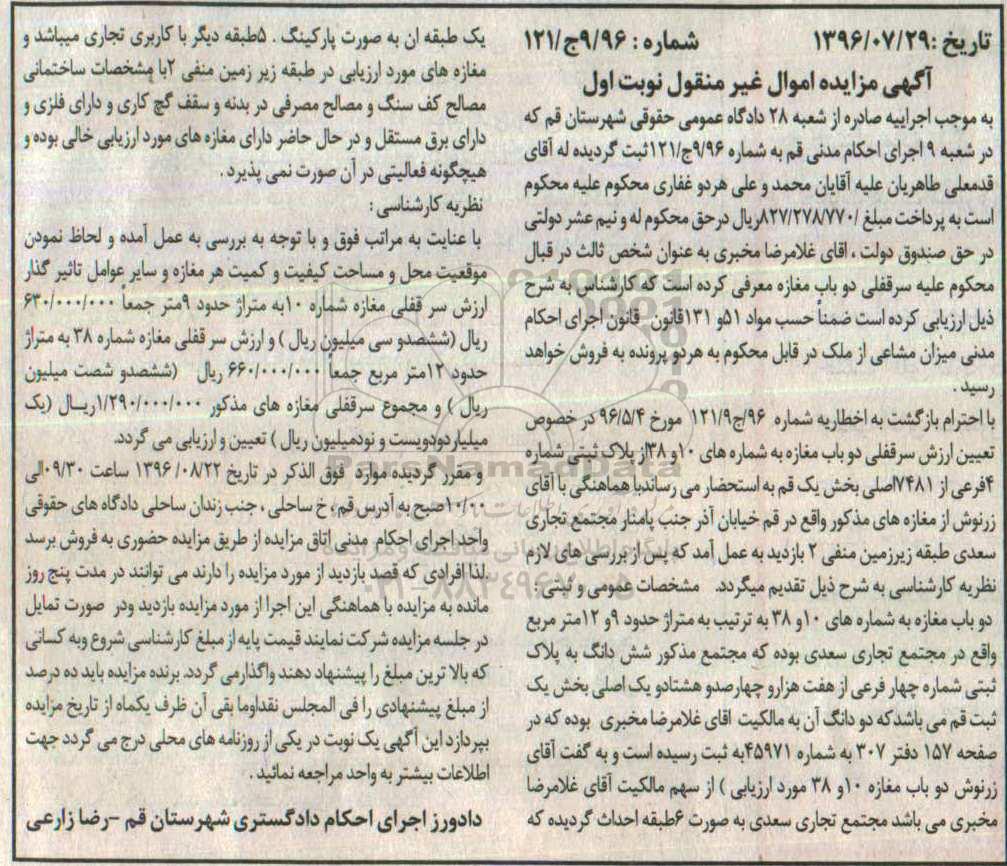 تاریخ :۱۳۹۶/۰۷/۲۹ شماره : ۹/۹۶ج/۱۲۱
آگهی مزایده اموال غیر منقول نوبت اول
به موجب اجراییه صادره از شعبه ۲۸ دادگاه عمومی حقوقی شهرستان قم که
در شعبه ۹ اجرای احکام مدنی قم به شماره ۹/۹۶ج/۱۲۱ثبت گردیده له آقای
قدمعلی طاهریان علیه آقایان محمد و علی هردو غفاری محکوم علیه محکوم
است به پرداخت مبلغ /۸۲۷/۲۷۸/۷۷۰ریال درحق محکوم له و نیم عشر دولتی
در حق صندوق دولت ، اقای غلامرضا مخبری به عنوان شخص ثالث در قبال
محکوم علیه سرقفلی دو باب مغازه معرفی کرده است که کارشناس به شرح
ذیل ارزیابی کرده است ضمناً حسب مواد ۵۱و ۱۳۱قانون قانون اجرای احکام
مدنی میزان مشاعی از ملک در قابل محکوم به هردو پرونده به فروش خواهد
رسید .
با احترام بازگشت به اخطاریه شماره ۹۶/ج۱۲۱/۹ مورخ ۹۶/۵/۴ در خصوص
تعیین ارزش سرقفلی دو باب مغازه به شماره های ۱۰و ۳۸از پلاک ثبتی شماره
۴فرعی از ۷۴۸۱اصلی بخش یک قم به استحضار می رساندبا هماهنگی با آقای
زرنوش از مغازه های مذکور واقع در قم خیابان آذر جنب پامنار مجتمع تجاری
سعدی طبقه زیرزمین منفی ۲ بازدید به عمل آمد که پس از بررسی های لازم
نظریه کارشناسی به شرح ذیل تقدیم میگردد. مشخصات عمومی و ثبتی :
دو باب مغازه به شماره های ۱۰و ۳۸ به ترتیب به متراژ حدود ۹و ۱۲متر مربع
واقع در مجتمع تجاری سعدی بوده که مجتمع مذکور شش دانگ به پلاک
ثبتی شماره چهار فرعی از هفت هزارو چهارصدو هشتادو یک اصلی بخش یک
ثبت قم می باشدکه دو دانگ آن به مالکیت اقای غلامرضا مخبری بوده که در
صفحه ۱۵۷ دفتر ۳۰۷ به شماره ۴۵۹۷۱به ثبت رسیده است و به گفت آقای
زرنوش دو باب مغازه ۱۰و ۳۸ مورد ارزیابی ) از سهم مالکیت آقای غلامرضا
مخبری می باشد مجتمع تجاری سعدی به صورت ۶طبقه احداث گردیده که
یک طبقه ان به صورت پارکینگ . ۵طبقه دیگر با کاربری تجاری میباشد و
مغازه های مورد ارزیابی در طبقه زیر زمین منفی ۲با مشخصات ساختمانی
مصالح کف سنگ و مصالح مصرفی در بدنه و سقف گچ کاری و دارای فلزی و
دارای برق مستقل و در حال حاضر دارای مغازه های مورد ارزیابی خالی بوده و
هیچگونه فعالیتی در آن صورت نمی پذیرد .
نظریه کارشناسی :
با عنایت به مراتب فوق و با توجه به بررسی به عمل آمده و لحاظ نمودن
موقعیت محل و مساحت کیفیت و کمیت هر مغازه و سایر عوامل تاثیر گذار
ارزش سر قفلی مغازه شماره ۱۰به متراژ حدود ۹متر جمعاً ۶۳۰/۰۰۰/۰۰۰
ریال (ششصدو سی میلیون ریال ) و ارزش سر قفلی مغازه شماره ۳۸ به متراژ
حدود ۱۲متر مربع جمعاً ۶۶۰/۰۰۰/۰۰۰ ریال (ششصدو شصت میلیون
ریال ) و مجموع سرقفلی مغازه های مذکور ۱/۲۹۰/۰۰۰/۰۰۰ریال (یک
میلیاردودویست و نودمیلیون ریال ) تعیین و ارزیابی می گردد.
و مقرر گردیده موارد فوق الذکر در تاریخ ۱۳۹۶/۰۸/۲۲ ساعت ۰۹/۳۰الی
۱۰/۰۰صبح به آدرس قم ، خ ساحلی ، جنب زندان ساحلی دادگاه های حقوقی
واحد اجرای احکام مدنی اتاق مزایده از طریق مزایده حضوری به فروش برسد
.لذا افرادی که قصد بازدید از مورد مزایده را دارند می توانند در مدت پنج روز
مانده به مزایده با هماهنگی این اجرا از مورد مزایده بازدید ودر صورت تمایل
در جلسه مزایده شرکت نمایند قیمت پایه از مبلغ کارشناسی شروع وبه کسانی
که بالا ترین مبلغ را پیشنهاد دهند واگذارمی گردد. برنده مزایده باید ده درصد
از مبلغ پیشنهادی را فی المجلس نقداوما بقی آن ظرف یکماه از تاریخ مزایده
بپردازد این آگهی یک نوبت در یکی از روزنامه های محلی درج می گردد جهت
اطلاعات بیشتر به واحد مراجعه نمائید .
دادورز اجرای احکام دادگستری شهرستان قم -رضا زارعی
ParsNamadData
۰۲۱-۸۸۳۴۹۶۷۰